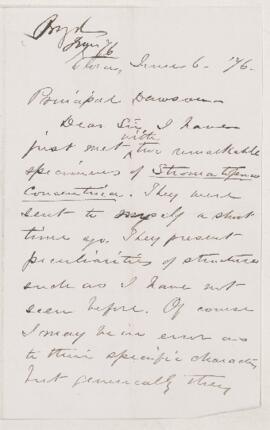 Boyd
June /76
Elora, June 6. 76.
Principal Dawson
Dear Sir, I have
just met with two remarkable
specimens of Stromatopora
Concentrica. They were
sent to myself a short
time ago. They present
peculiarities of structure
such as I have not
seen before. Of course
I may be in error as
to their specific character
but generically they